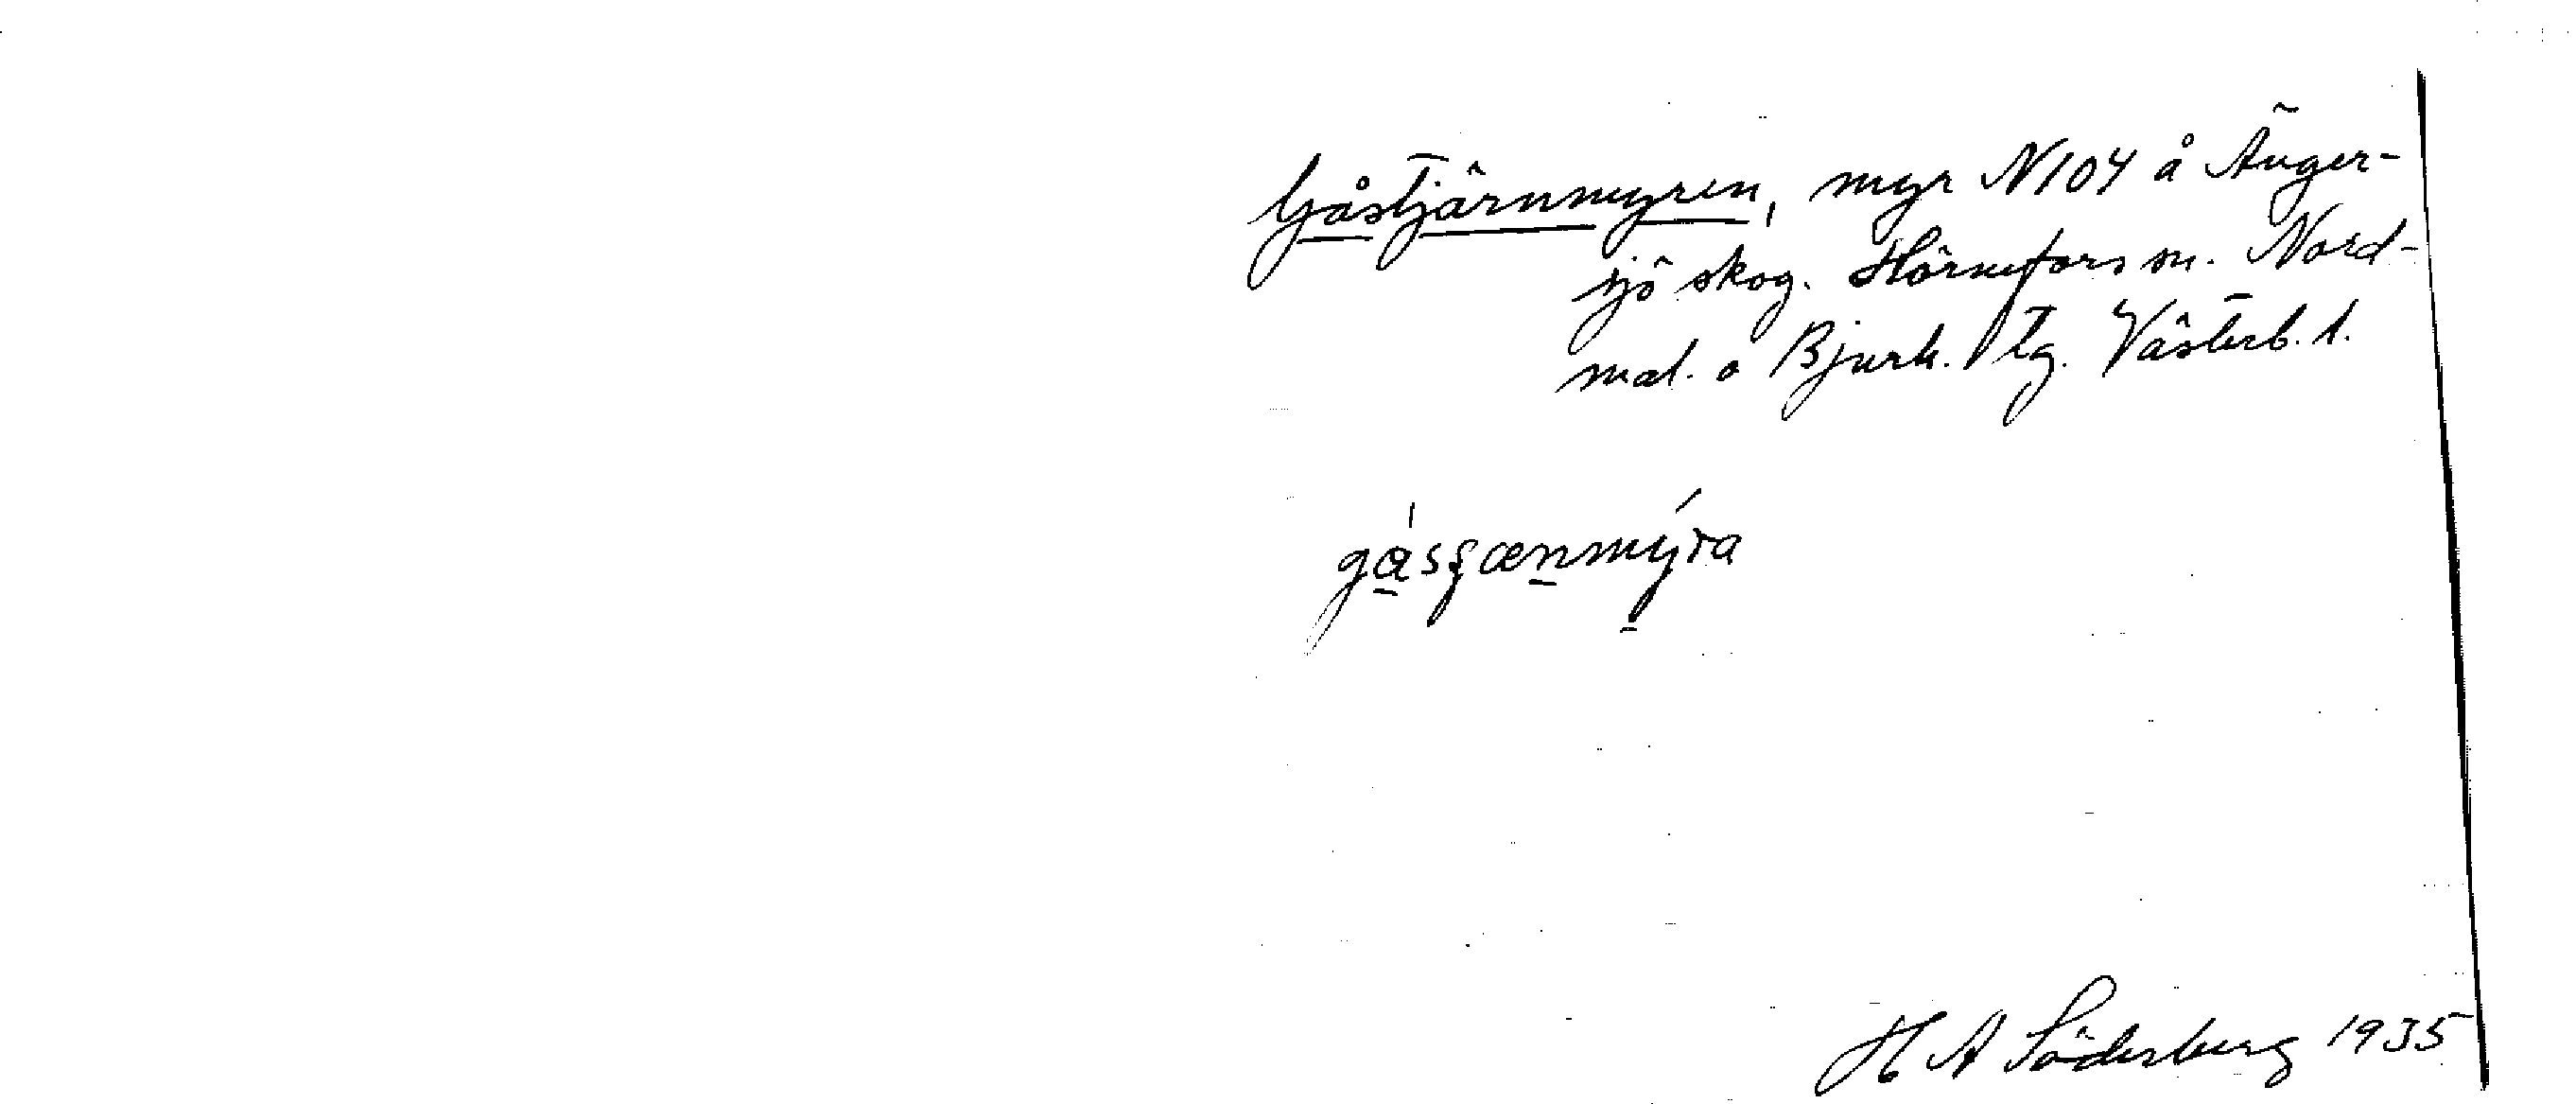 Gåstjärnmyren, myr N104 å Änger-
sjö skog. Hörnefors sn. Nord-
mal. o Bjurh. tg. Västerb. l.
H A Söderberg 1935